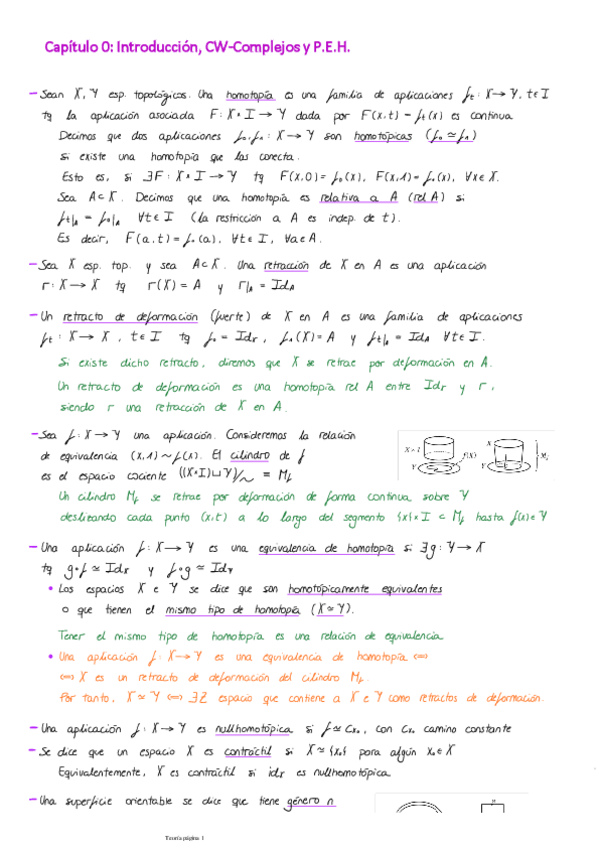 Capítulo 0: Introducción, CW-Complejos y P.E.H.
– Sean X, Y esp. topológicos. Una homotopía es una familia de aplicaciones fₜ: X → Y, t ∈ I
tq la aplicación asociada F: X × I → Y dada por F(x,t) = fₜ(x) es continua.
Decimos que dos aplicaciones f₀, f₁: X → Y son homotópicas (f₀ ≃ f₁)
si existe una homotopía que las conecta.
Esto es, si ∃F: X × I → Y tq F(x,0) = f₀(x), F(x,1) = f₁(x), ∀x ∈ X.
Sea A ⊂ X. Decimos que una homotopía es relativa a A (rel A) si
fₜ|A = f₀|A ∀t ∈ I (la restricción a A es indep. de t).
Es decir, F(a,t) = f₀(a), ∀t ∈ I, ∀a ∈ A.
– Sea X esp. top. y sea A ⊂ X. Una retracción de X en A es una aplicación
r: X → X tq r(X) = A y r|A = IdA
– Un retracto de deformación (fuerte) de X en A es una familia de aplicaciones
fₜ: X → X, t ∈ I tq f₀ = Idx, f₁(X) = A y fₜ|A = IdA ∀t ∈ I.
Si existe dicho retracto, diremos que X se retrae por deformación en A.
Un retracto de deformación es una homotopía rel A entre Idx y r,
siendo r una retracción de X en A.
– Sea f: X → Y una aplicación. Consideremos la relación
de equivalencia (x,1) ~ f(x). El cilindro de f
es el espacio cociente ((X×I) ⊔ Y)/~ = Mf
X × I
Y
f(X)
X
Y
Mf
Un cilindro Mf se retrae por deformación de forma continua sobre Y
deslizando cada punto (x,t) a lo largo del segmento {x} × I ⊂ Mf hasta f(x) ∈ Y
– Una aplicación f: X → Y es una equivalencia de homotopía si ∃g: Y → X
tq g∘f ≃ Idx y f∘g ≃ Idy
• Los espacios X e Y se dice que son homotópicamente equivalentes
o que tienen el mismo tipo de homotopía (X ≃ Y).
Tener el mismo tipo de homotopía es una relación de equivalencia
• Una aplicación f: X → Y es una equivalencia de homotopía ⟺
⟺ X es un retracto de deformación del cilindro Mf.
Por tanto, X ≃ Y ⟺ ∃Z espacio que contiene a X e Y como retractos de deformación.
– Una aplicación f: X → Y es nullhomotópica si f ≃ Cx₀, con Cx₀ camino constante
– Se dice que un espacio X es contráctil si X ≃ {x₀} para algún x₀ ∈ X
Equivalentemente, X es contráctil si idx es nullhomotópica
– Una superficie orientable se dice que tiene género n
Teoría página 1